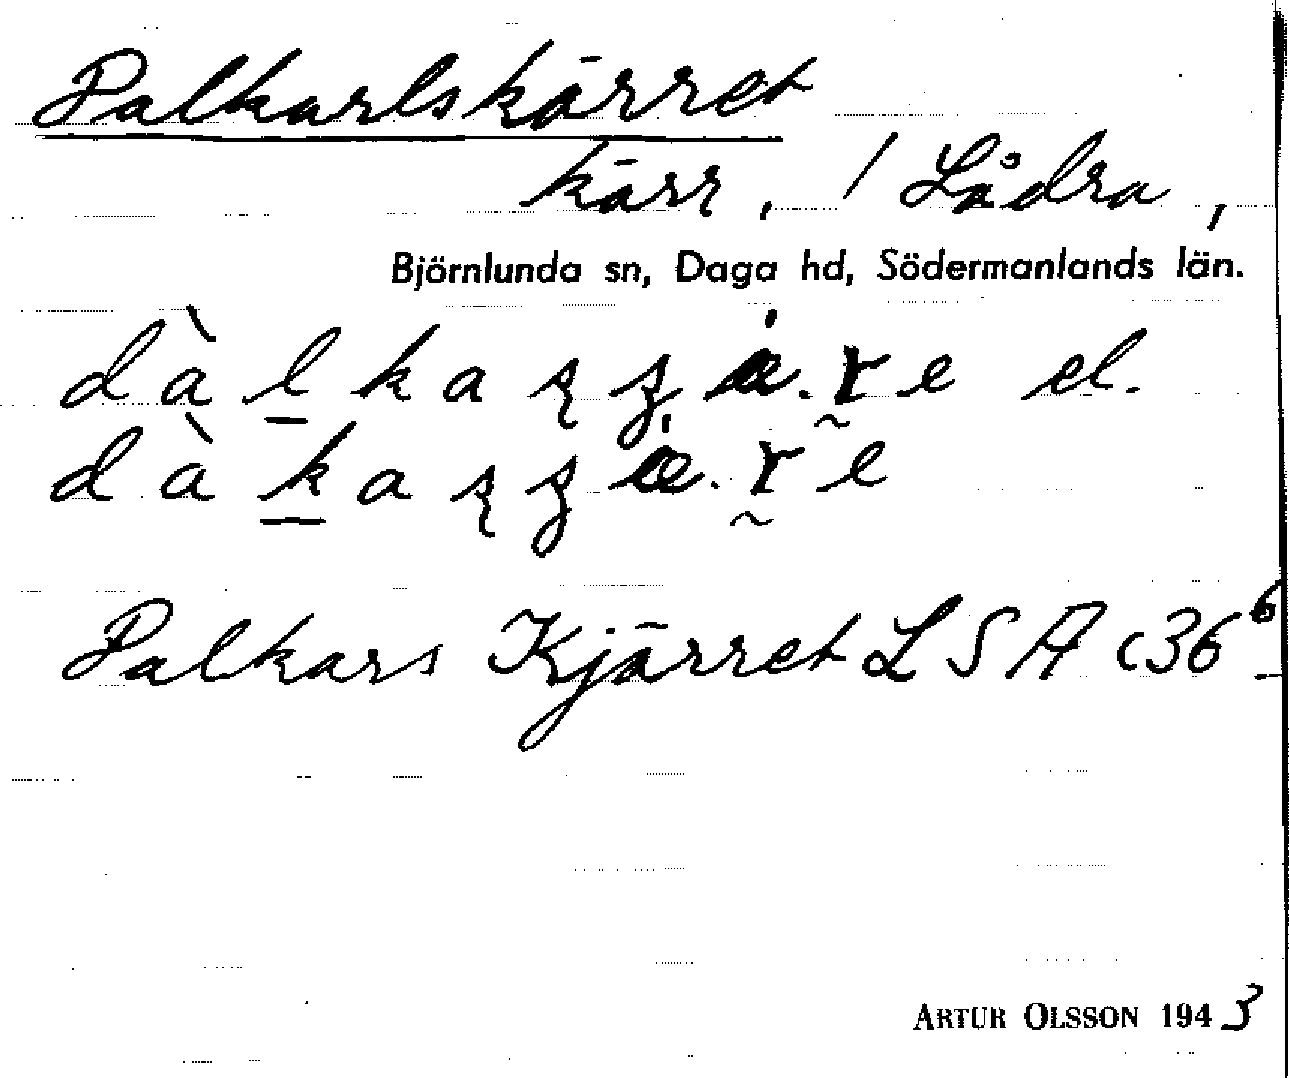 Dalkarlskärret
kärr, / Lådra,
Björnlunda sn, Daga hd, Södermanlands län.
el.
Dalkars Kjärret LSA C36⁶
ARTUR OLSSON 1943